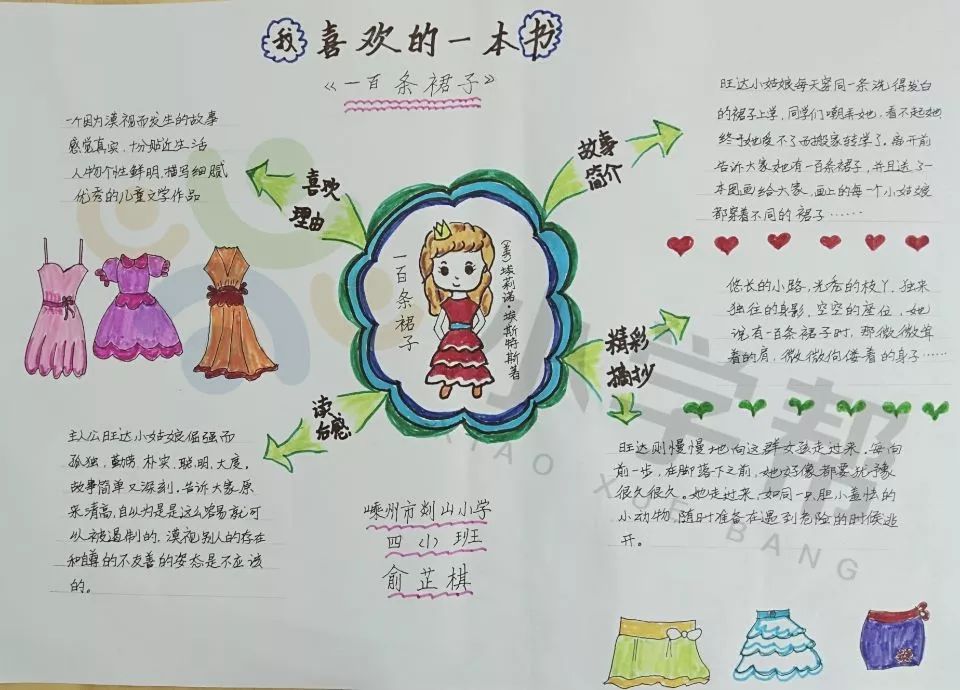 我喜欢的一本书
《一百条裙子》
喜欢
理由
一个因为漠视而发生的故事
感觉真实,十分贴近生活
人物个性鲜明,描写细腻
优秀的儿童文学作品
故事
简介
旺达小姑娘每天穿同一条洗得发白
的裙子上学,同学们嘲弄她,看不起她
终于她受不了而搬家转学了。离开前
告诉大家她有一百条裙子,并且送了一
本图画给大家,画上的每一个小姑娘
都穿着不同的裙子……
一百条裙子
(美)埃莉诺·埃斯特斯著
精彩
摘抄
悠长的小路,光秃的枝丫,独来
独往的身影,空空的座位,她
说有一百条裙子时,那微微耸
着的肩,微微佝偻着的身子……
旺达则慢慢地向这群女孩走过来,每向
前一步,在脚落下之前,她好像都要犹豫
很久很久。她走过来,如同一只胆小羞怯的
小动物,随时准备在遇到危险的时候逃
开。
读
后感
主人公旺达小姑娘倔强而
孤独,勤劳,朴实,聪明,大度,
故事简单又深刻,告诉大家原
来清高,自以为是是这么容易就可
以被遏制的,漠视别人的存在
和自尊的不友善的姿态是不应该
的。
嵊州市剡山小学
四(1)班
俞芷棋
小学帮
XIAO XUE BANG